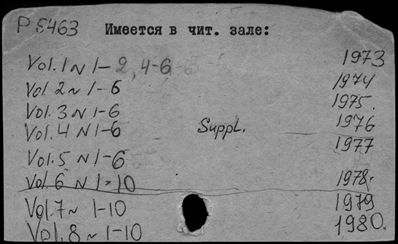 P 5463 Имеется в чит. зале:
Vol. 1 N 1-2, 4-6 1973
Vol 2 N 1-6 1974
Vol. 3 N 1-6 1975.
Vol. 4 N 1-6 Suppl. 1976
Vol. 5 N 1-6 1977
Vol. 6 N 1-10 1978.
Vol. 7 N 1-10 1979
Vol. 8 N 1-10 1980.